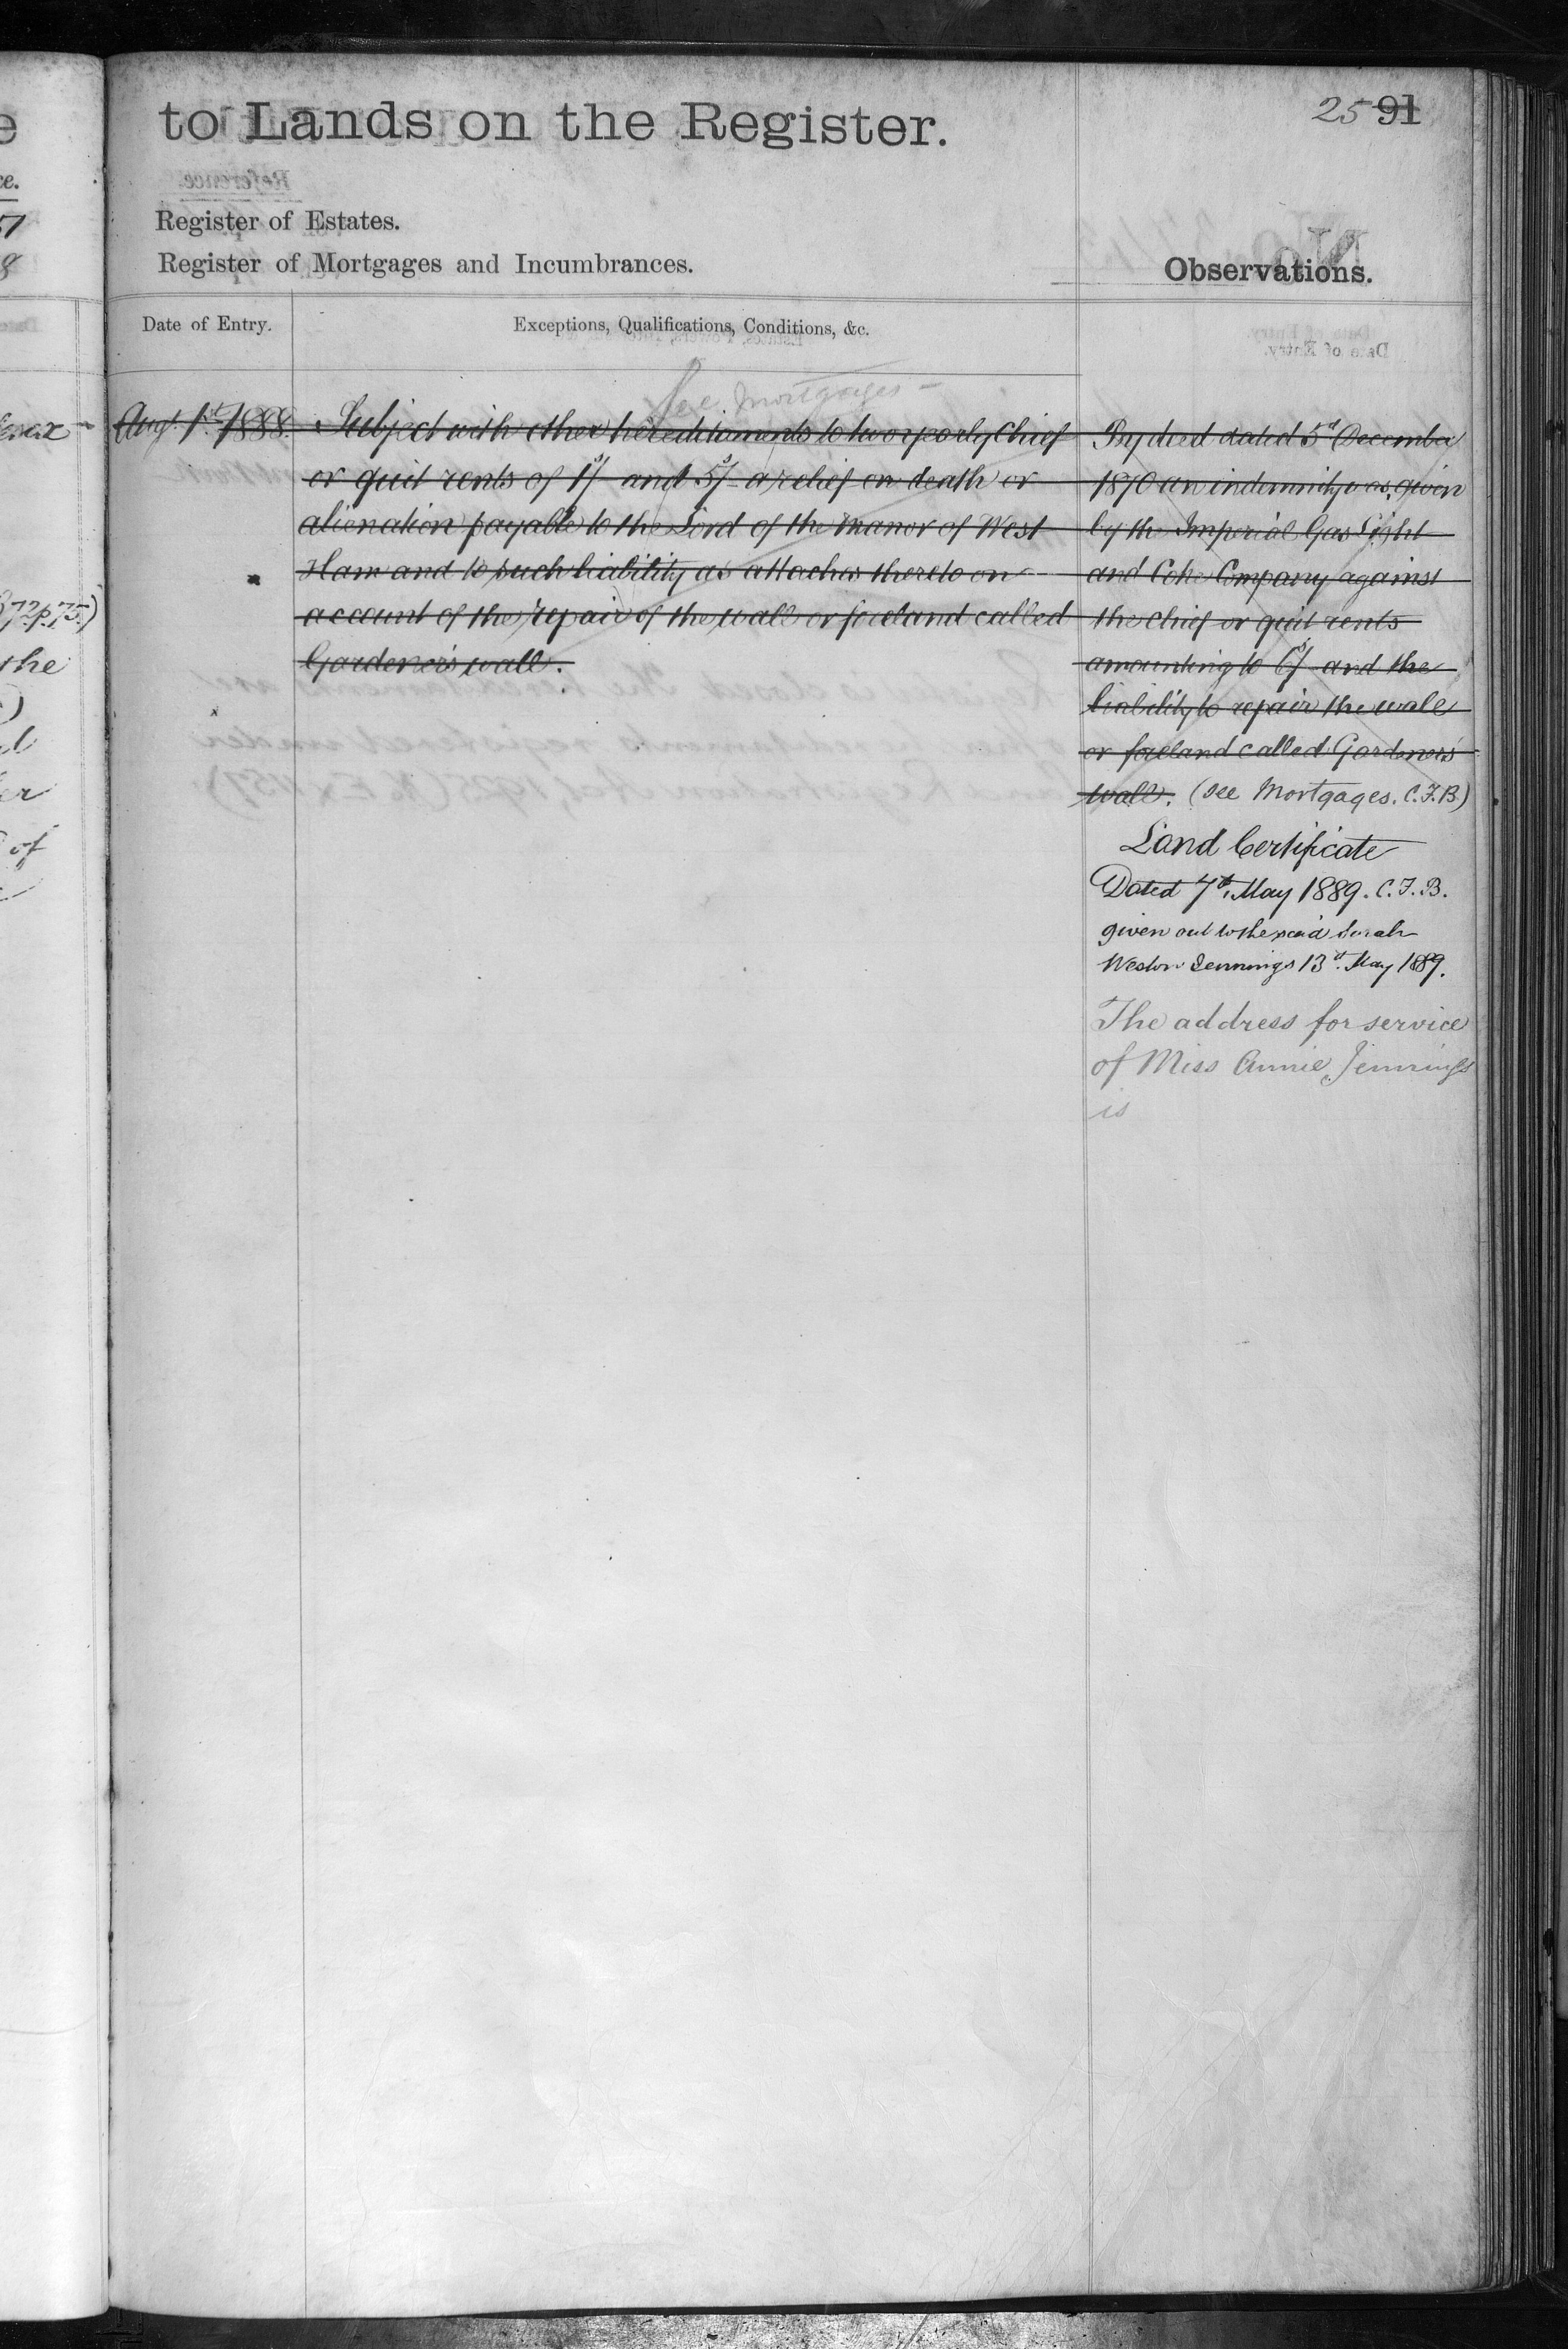 to Lands on the Register.
25 91
Register of Estates.
Register of Mortgages and Incumbrances.
Observations.
Date of Entry.
Exceptions, Qualifications, Conditions, &c.
See Mortgages –
Augt. 1st 1888.
Subject with other hereditaments to two yearly Chief
or quit rents of 1s/ and 5s/ a relief on death or
alienation payable to the Lord of the Manor of West
Ham and to such liability as attaches thereto on
account of the repair of the wall or foreland called
Gardener's wall.
By deed dated 5th December
1870 an indemnity was given
by the Imperial Gas Light
and Coke Company against
the chief or quit rents
amounting to 6s/ and the
liability to repair the wall
or foreland called Gardener's
wall. (See Mortgages. C.F.B.)
Land Certificate
Dated 7th May 1889. C.F.B.
given out to the said Sarah
Weston Jennings 13th May 1889.
The address for service
of Miss Annie Jennings
is